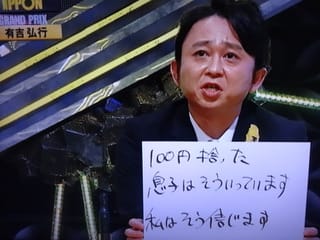 IPPON
GRAND PRIX
有吉弘行
100円捨った
息子はそういっています
私はそう信じます